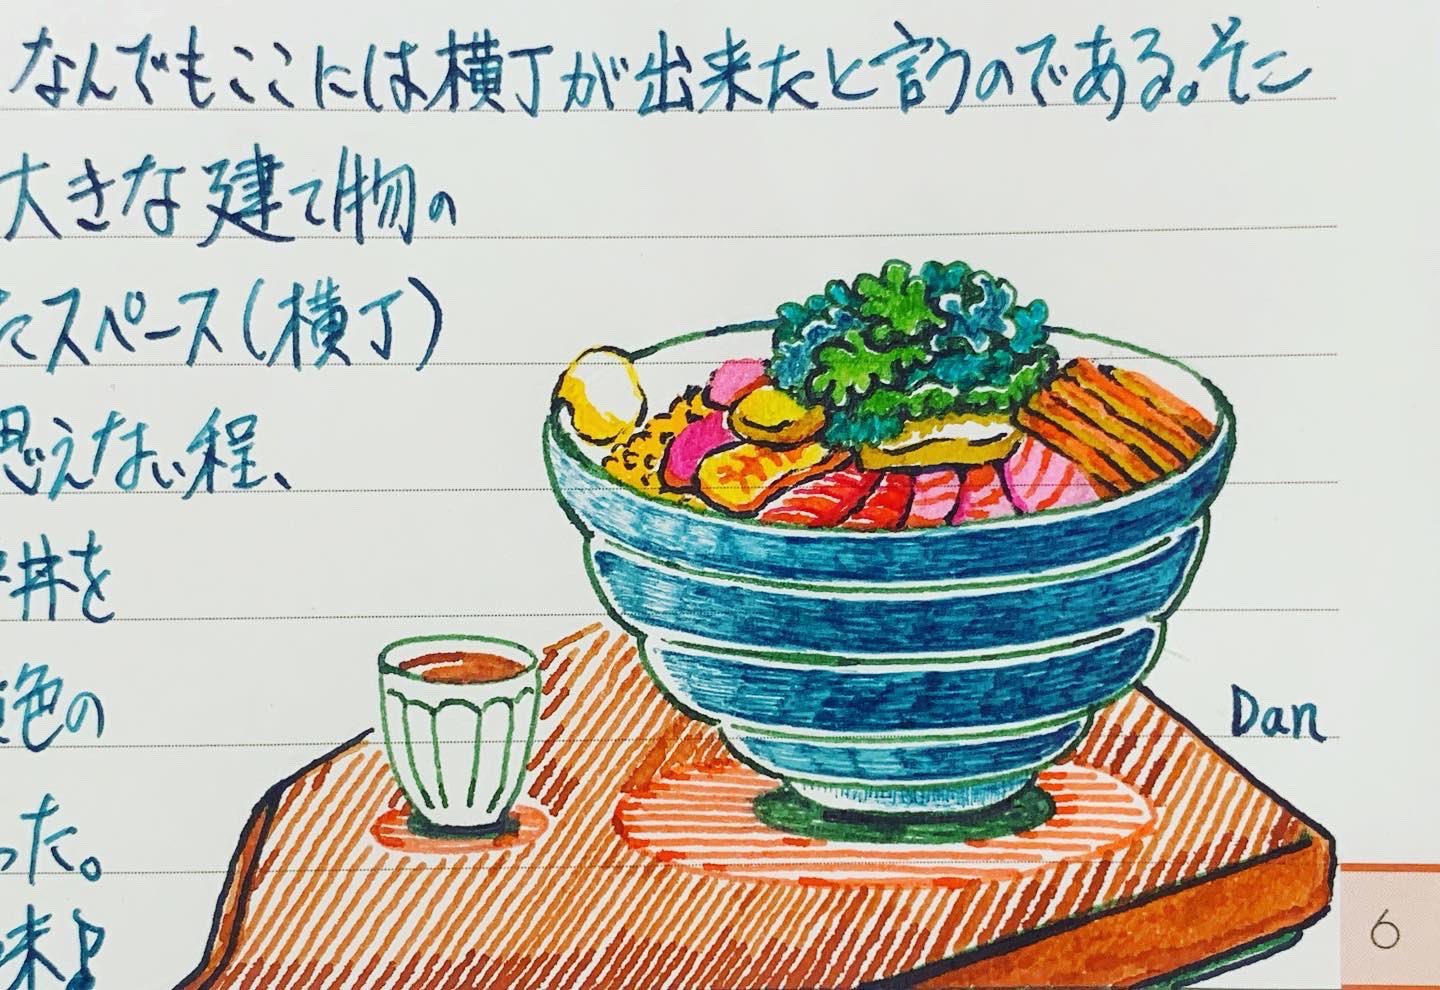 なんでもここには横丁が出来たと言うのである。そこ
大きな建て物の
たスペース(横丁)
思えない程、
丼を
色の
った。
味♪
Dan
6